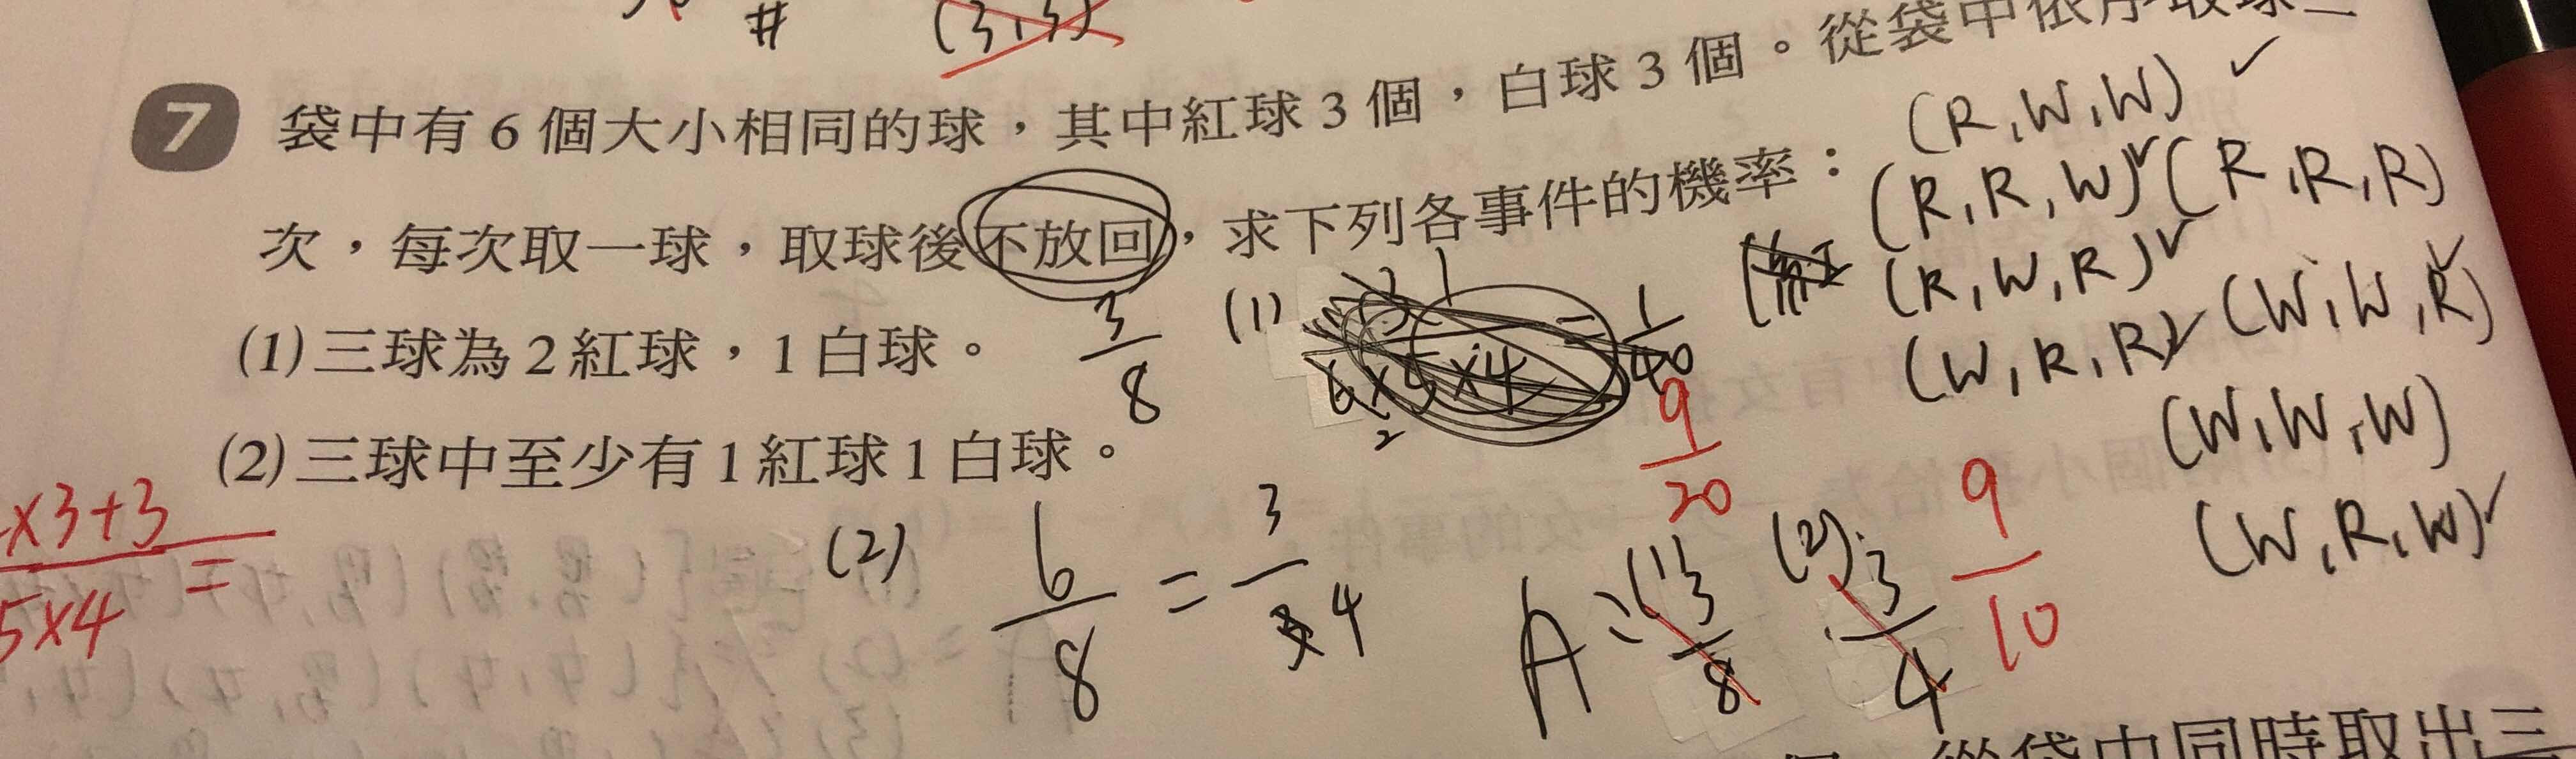 # (3,3)
7 袋中有6個大小相同的球，其中紅球3個，白球3個。從袋中依序取球三
次，每次取一球，取球後不放回，求下列各事件的機率：
(R,W,W) ✓
(R,R,W)✓ (R,R,R)
(R,W,R)✓
(W,R,R)✓ (W,W,R)✓
(W,W,W)
(W,R,W)✓
(1)三球為2紅球，1白球。 3/8 (1) 6×5×4 = 1/40
9/20
(2)三球中至少有1紅球1白球。
×3+3/5×4 =
(2) 6/8 = 3/4
A:(1) 3/8 (2) 3/4 9/10
從袋中同時取出三